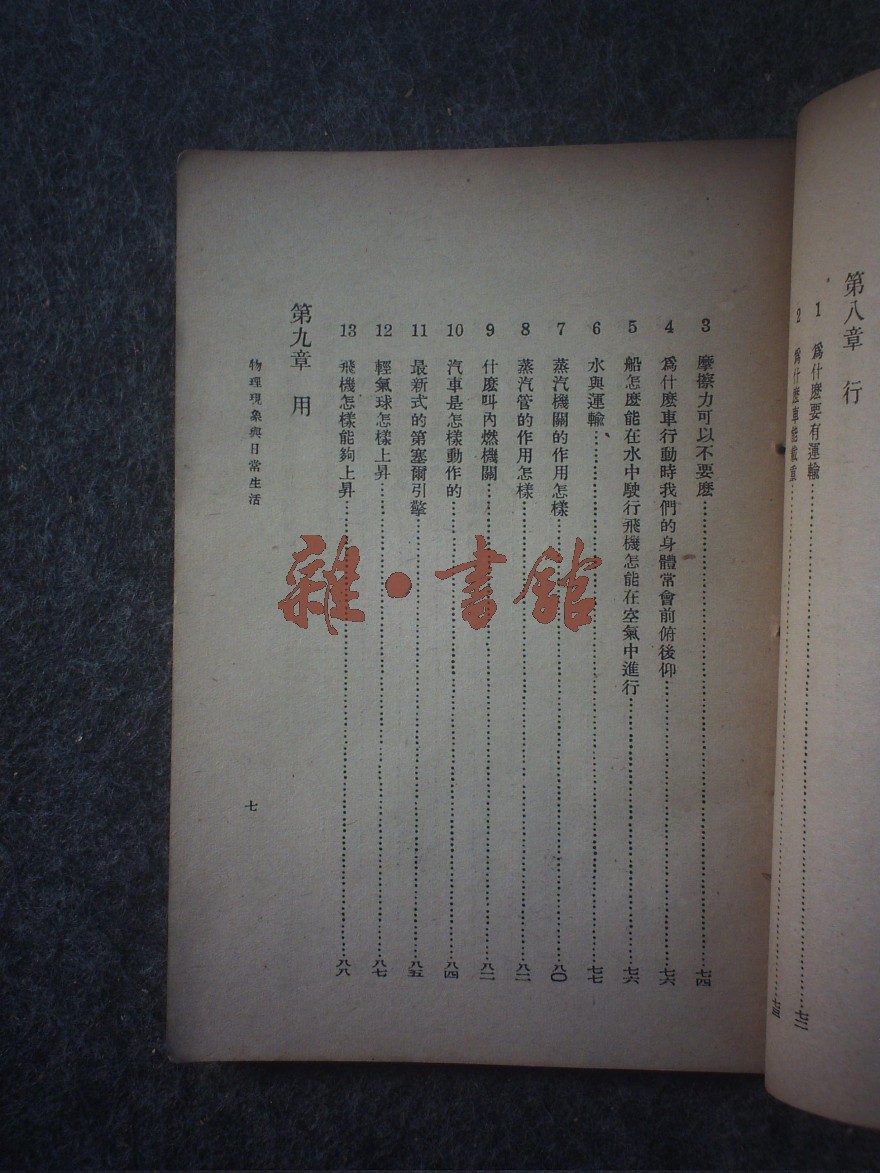 第八章 行
1 爲什麼要有運輸……七二
2 爲什麼車能載重……七三
3 摩擦力可以不要麼……七四
4 爲什麼車行動時我們的身體常會前俯後仰……七六
5 船怎麼能在水中駛行飛機怎能在空氣中進行……七六
6 水與運輸……七七
7 蒸汽機關的作用怎樣……八〇
8 蒸汽管的作用怎樣……八二
9 什麼叫內燃機關……八二
10 汽車是怎樣動作的……八四
11 最新式的第塞爾引擎……八五
12 輕氣球怎樣上昇……八七
13 飛機怎樣能夠上昇……八八
第九章 用
物理現象與日常生活
七
雜·書館